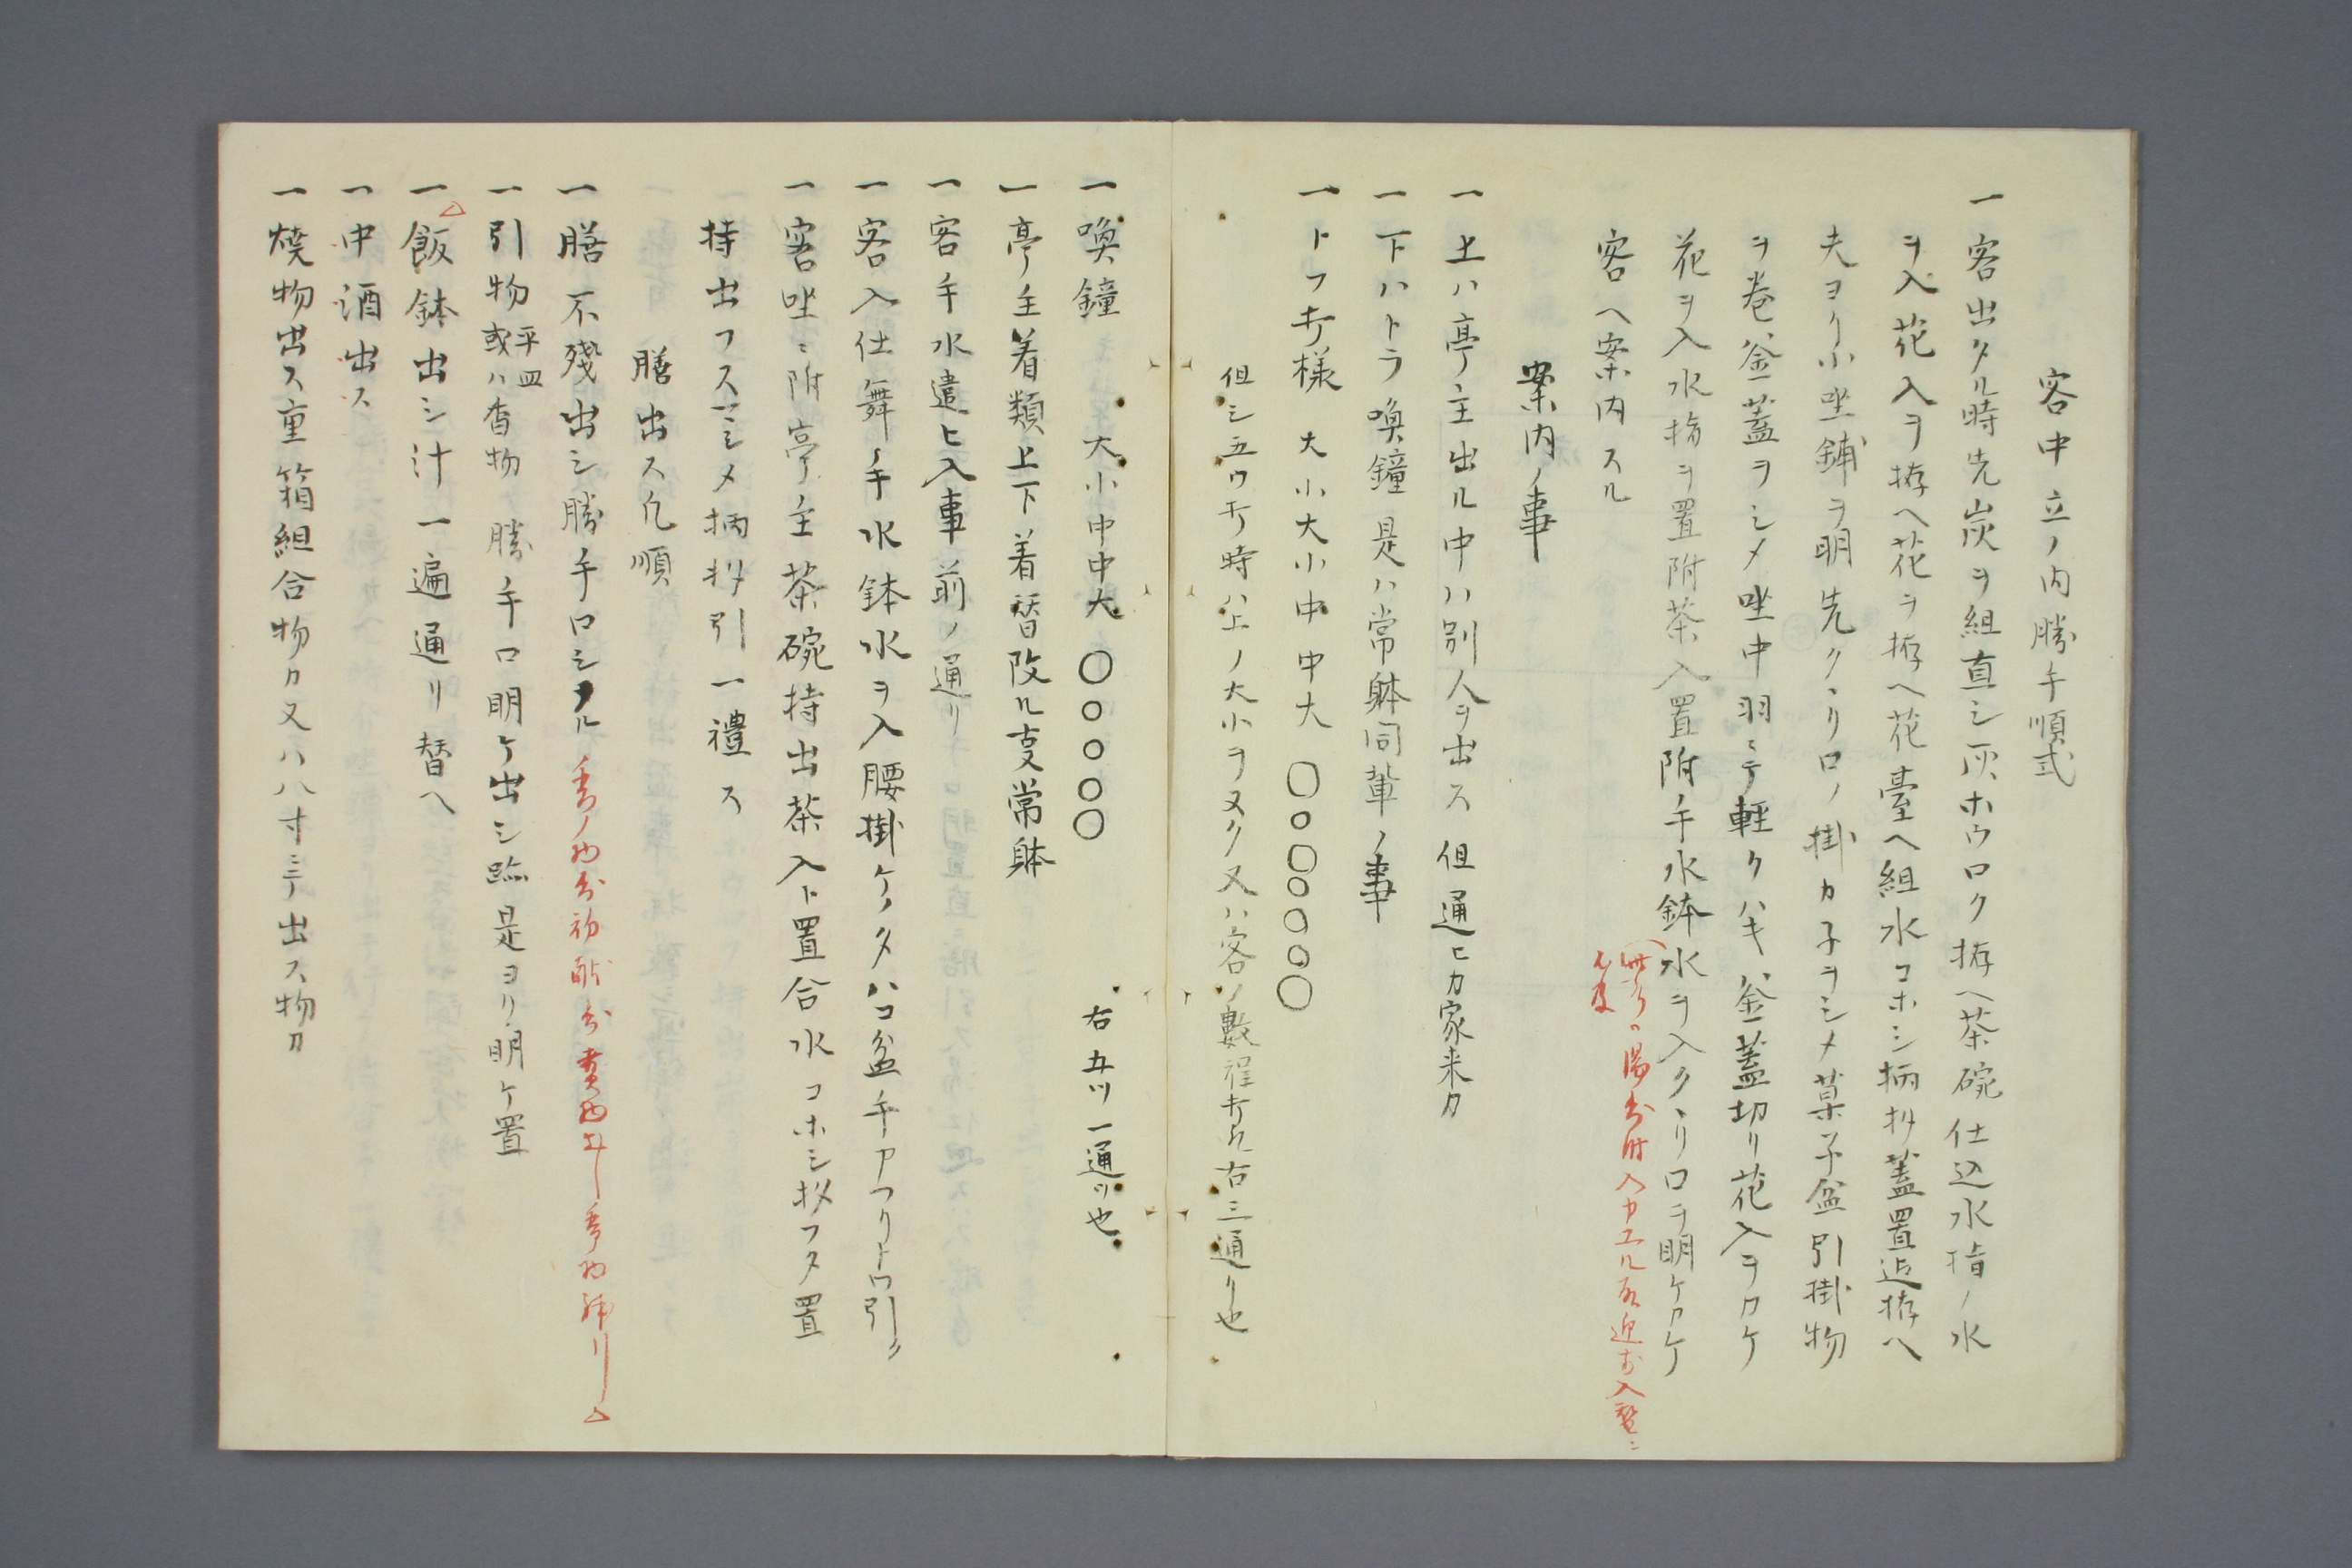 客中立ノ内勝手順式
一客出タル時先炭ヲ組直シ灰ホウロク拵ヘ茶碗仕込水指ノ水
ヲ入花入ヲ拵ヘ花ヲ拵ヘ花臺ヘ組水コホシ柄杓蓋置迠拵ヘ
夫ヨリ小坐鋪ヲ明先クヽリ口ノ掛カ子ヲシメ菓子盆引掛物
ヲ巻釜蓋ヲシメ坐中羽ニテ輕クハキ釜蓋切リ花入ヲカケ
花ヲ入水指ヲ置附茶入置附手水鉢水ヲ入クヽリ口ヲ明ケカケ
入カエル
客ヘ案内スル
案内ノ事
一上ハ亭主出ル中ハ別人ヲ出ス但通ヒカ家来カ
一下ハトラ喚鐘是ハ常躰同輩ノ事
一トラ打樣 大小大小中中大 〇○〇○○○〇
但シ五ツ打時ハ上ノ大小ヲヌク又ハ客ノ數程打凡右三通リ也
一喚鐘 大小中中大 〇○○○〇 右五ツ一通ツ也
一亭主着類上下着替改ル支常躰
一客手水遣ヒ入事前ノ通リ
一客入仕舞ノ手水鉢水ヲ入腰掛ケノタハコ盆手アフリトウ引ク
一客坐ニ附亭主茶碗持出茶入ト置合水コホシ杓フタ置
持出フスマシメ柄杓引一禮ス
膳出ス凡順
一膳不殘出シ勝手口シメル
一引物平皿或ハ香物勝手口明ケ出シ跡是ヨリ明ケ置
一飯鉢出シ汁一遍通リ替ヘ
一中酒出ス
一燒物出ス重箱組合物カ又ハ八寸ニテ出ス物カ